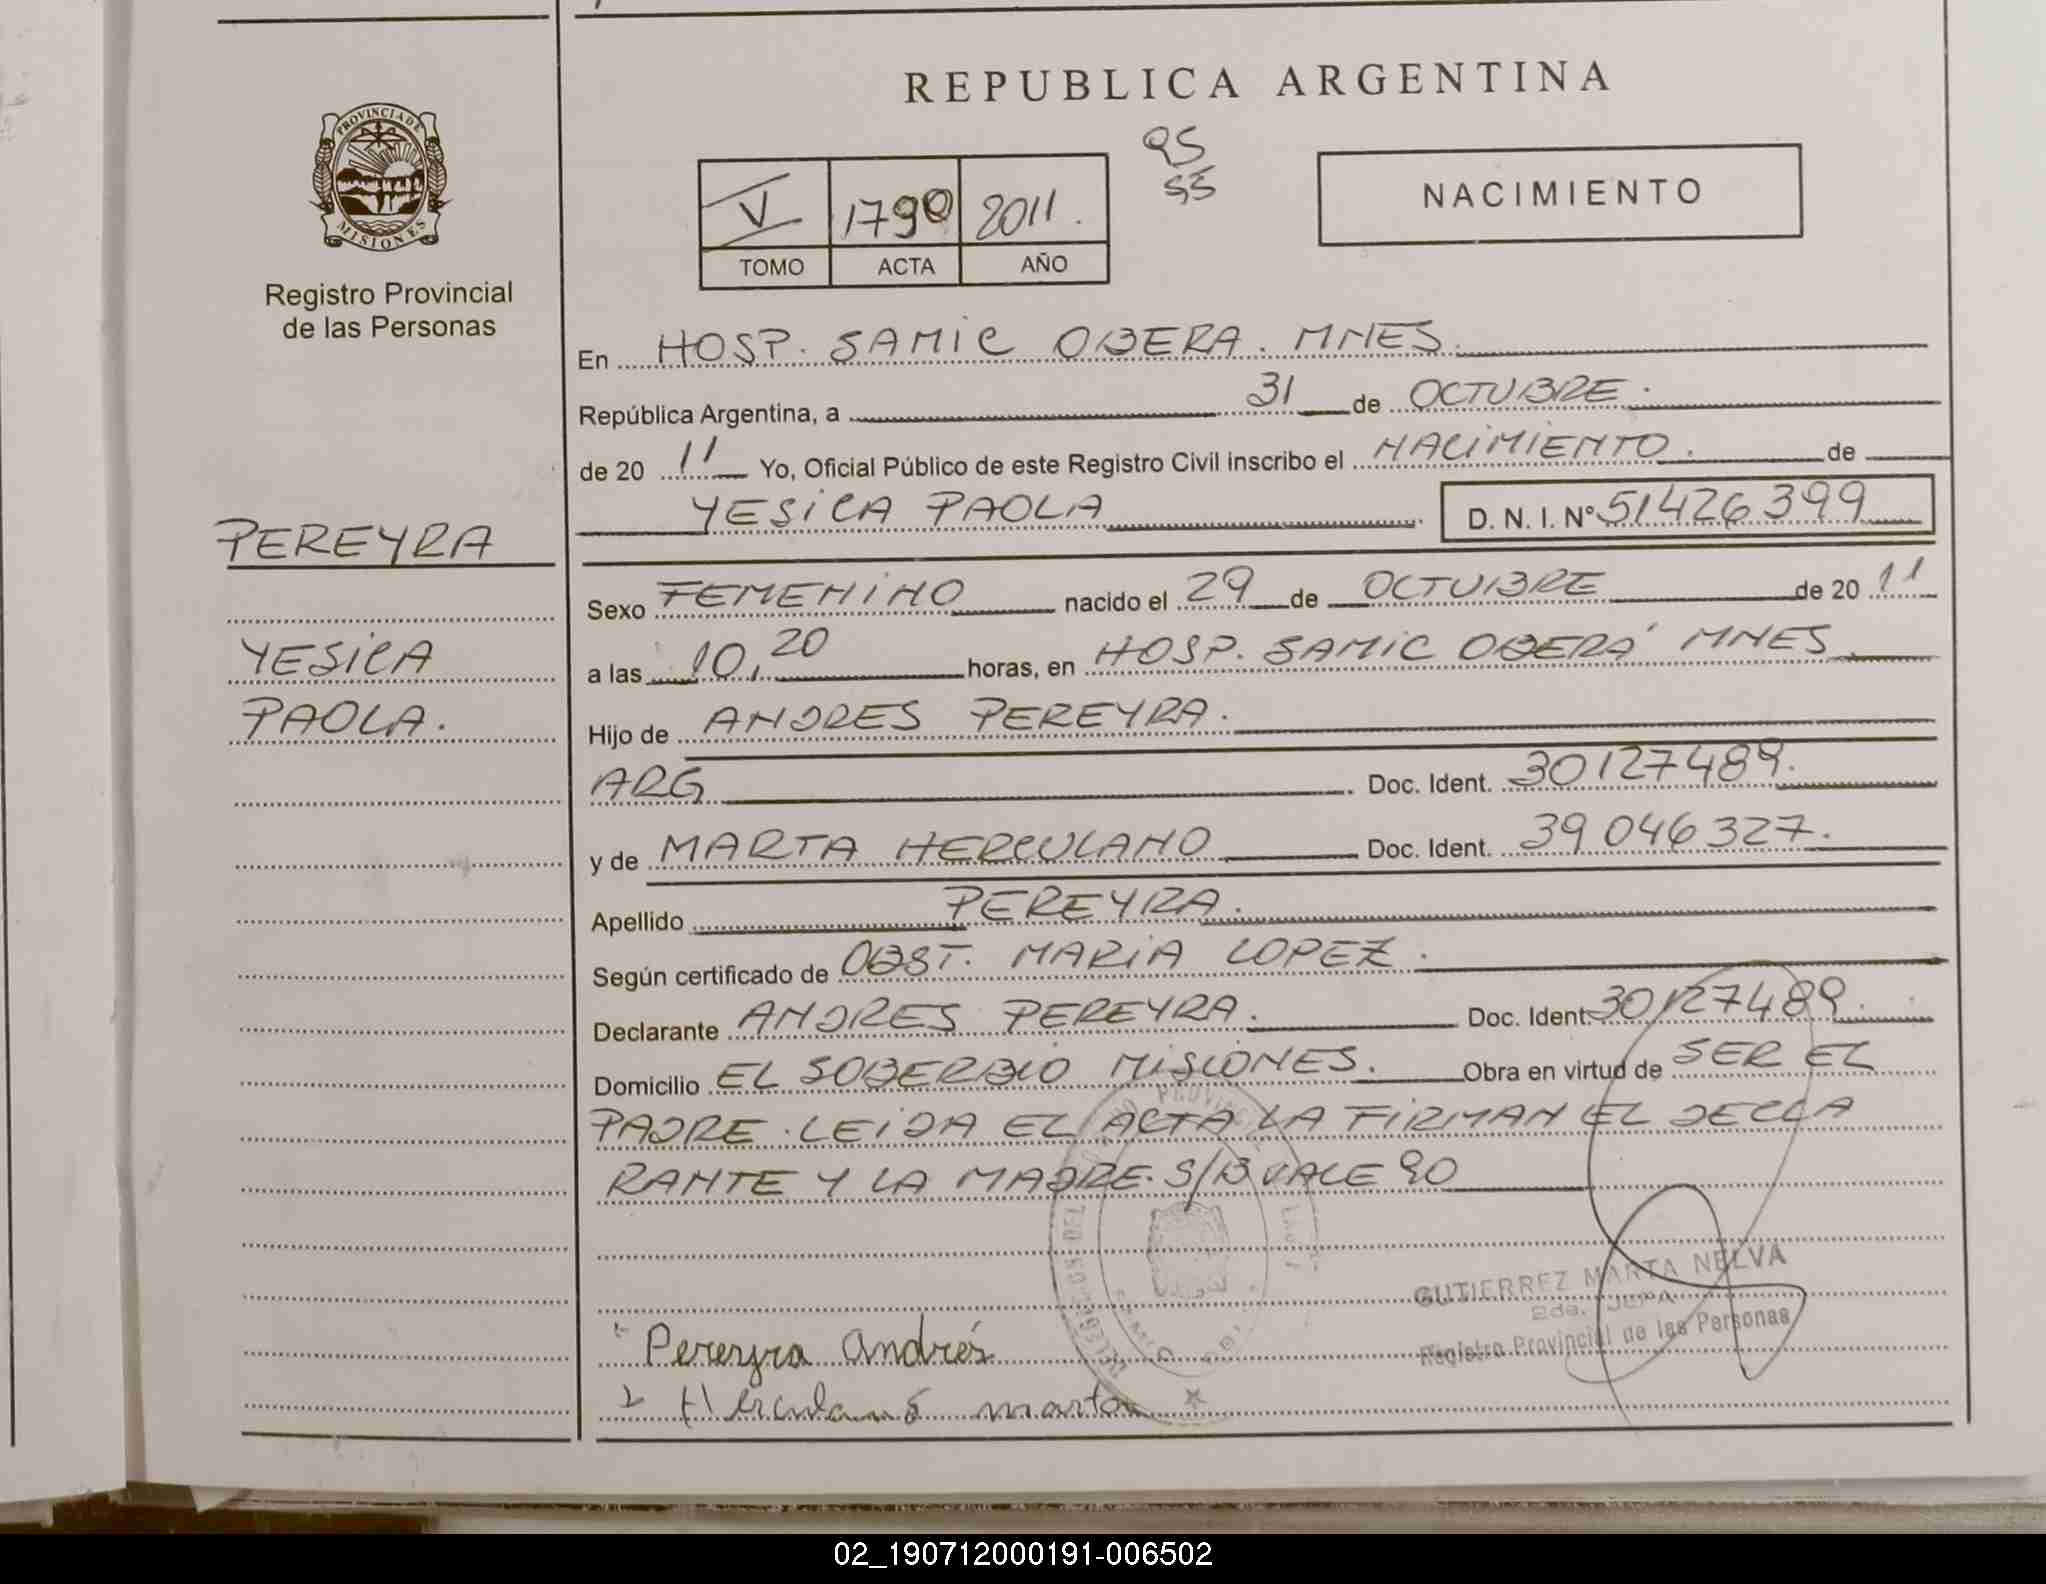 REPUBLICA ARGENTINA
PROVINCIA DE
MISIONES
Registro Provincial
de las Personas
PEREYRA
YESiCA
PAOLA.
V 1790 2011.
TOMO ACTA AÑO
NACIMIENTO
En HOSP. SAMIC OBERA. MNES.
República Argentina, a 31 de OCTUBRE.
de 20 11 Yo, Oficial Público de este Registro Civil inscribo el NACIMIENTO. de
YESiCA PAOLA D. N. I. Nº 51426399
Sexo FEMENINO nacido el 29 de OCTUBRE de 20 11
a las 10,20 horas, en HOSP. SAMIC OBERÁ MNES.
Hijo de ANDRES PEREYRA.
ARG Doc. Ident. 30127489.
y de MARTA HERCULANO Doc. Ident. 39046327.
Apellido PEREYRA.
Según certificado de OBST. MARIA LOPEZ.
Declarante ANDRES PEREYRA. Doc. Ident. 30127489.
Domicilio EL SOBERBIO MISIONES. Obra en virtud de SER EL
PADRE. LEIDA EL ACTA LA FIRMAN EL DECLA
RANTE Y LA MADRE. S/B VALE 90
GUTIERREZ MARTA NELVA
Registro Provincial de las Personas
Pereyra Andrés
Herculano marta
02_190712000191-006502